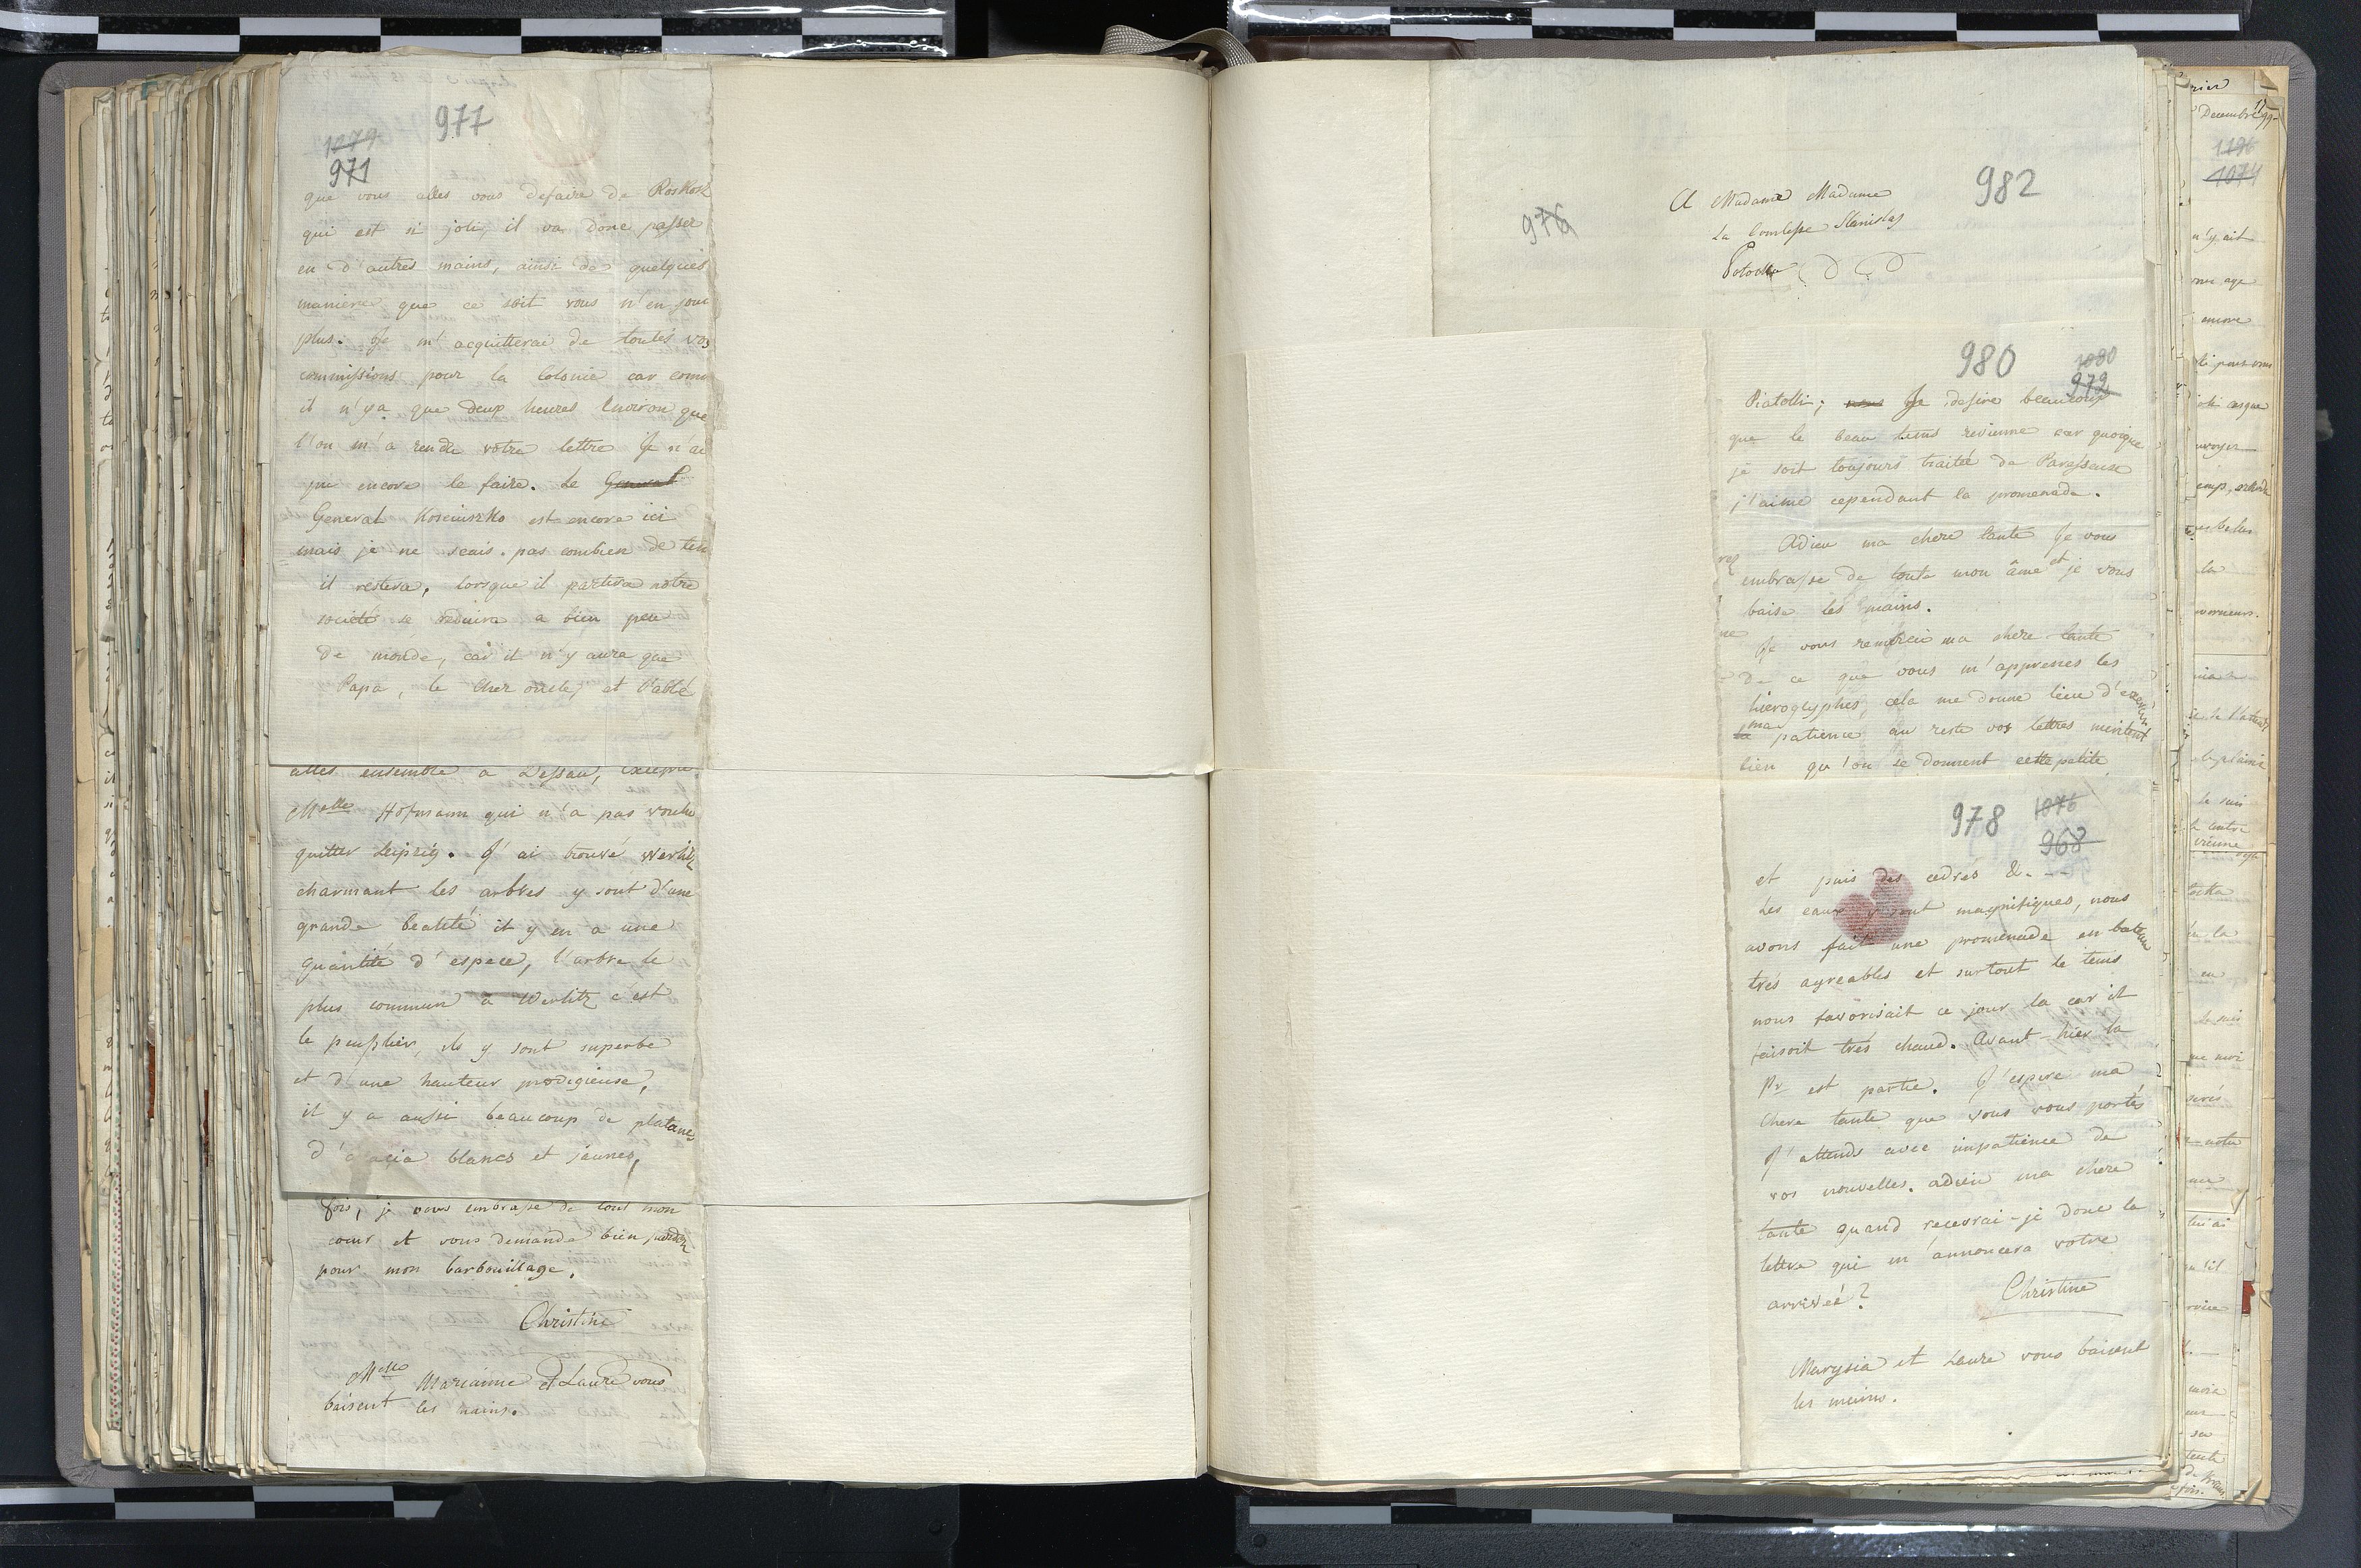 977
1079
971
que vous alles vous defaire de Roskosz
qui est si joli, il va donc passer
en d'autres mains, ainsi de quelques
maniere que ce soit vous n'en joui
plus. Je m'acquitterai de toutes vos
commissions pour la Colonie car comm
il n'y a que deux heures Environ que
l'on m'a rendu votre lettre Je n'ai
pu encore le faire. Le General
General Kosciuszko est encore ici
mais je ne scais pas combien de tem
il restera, lorsque il partira notre
societé se reduira a bien peu
de monde, car il n'y aura que
Papa, le Cher oncle, et l'abbé
allés ensemble a Dessau, excepté
Melle Hofmann qui n'a pas voulu
quitter Leipzig. J'ai trouvé Werlitz
charmant les arbres y sont d'une
grande beauté il y en a une
quantité d'espece, l'arbre le
plus commun a Werlitz c'est
le peuplier, ils y sont superbe
et d'une hauteur prodigieuse,
il y a aussi beaucoup de platanes
d'acacia blancs et jaunes,
fois, je vous embrasse de tout mon
coeur et vous demande bien pardon
pour mon barbouillage.
Christine
Melle Marianne et Laure vous
baisent les mains.
982
976
A Madame Madame
La Comtesse Stanislas
Potocka
980
1080
972
Piatolli; Je desire beaucoup
que le beau tems revienne car quoique
je soit toujours traitée de Paresseuse
j'aime cependant la promenade.
Adieu ma chere tante Je vous
embrasse de toute mon âme et je vous
baise les mains.
Je vous remercie ma chere tante
de ce que vous m'apprenes les
hieroglyphes, cela me donne lieu d'exercer
ma patience au reste vos lettres meritent
bien qu'on se donnent cette petite
978
1076
968
et puis des cedres &.
Les eaux y sont magnifiques, nous
avons fait une promenade en bateau
trés agreables et surtout le tems
nous favorisait ce jour la car il
faisoit trés chaud. Avant-hier la
Pr est partie. J'espere ma
Chere tante que vous vous portés
J'attends avec impatience de
vos nouvelles. adieu ma chere
tante quand recevrai-je donc la
lettre qui m'annoncera votre
arrivée?
Christine
Marysia et Laure vous baisent
les mains.